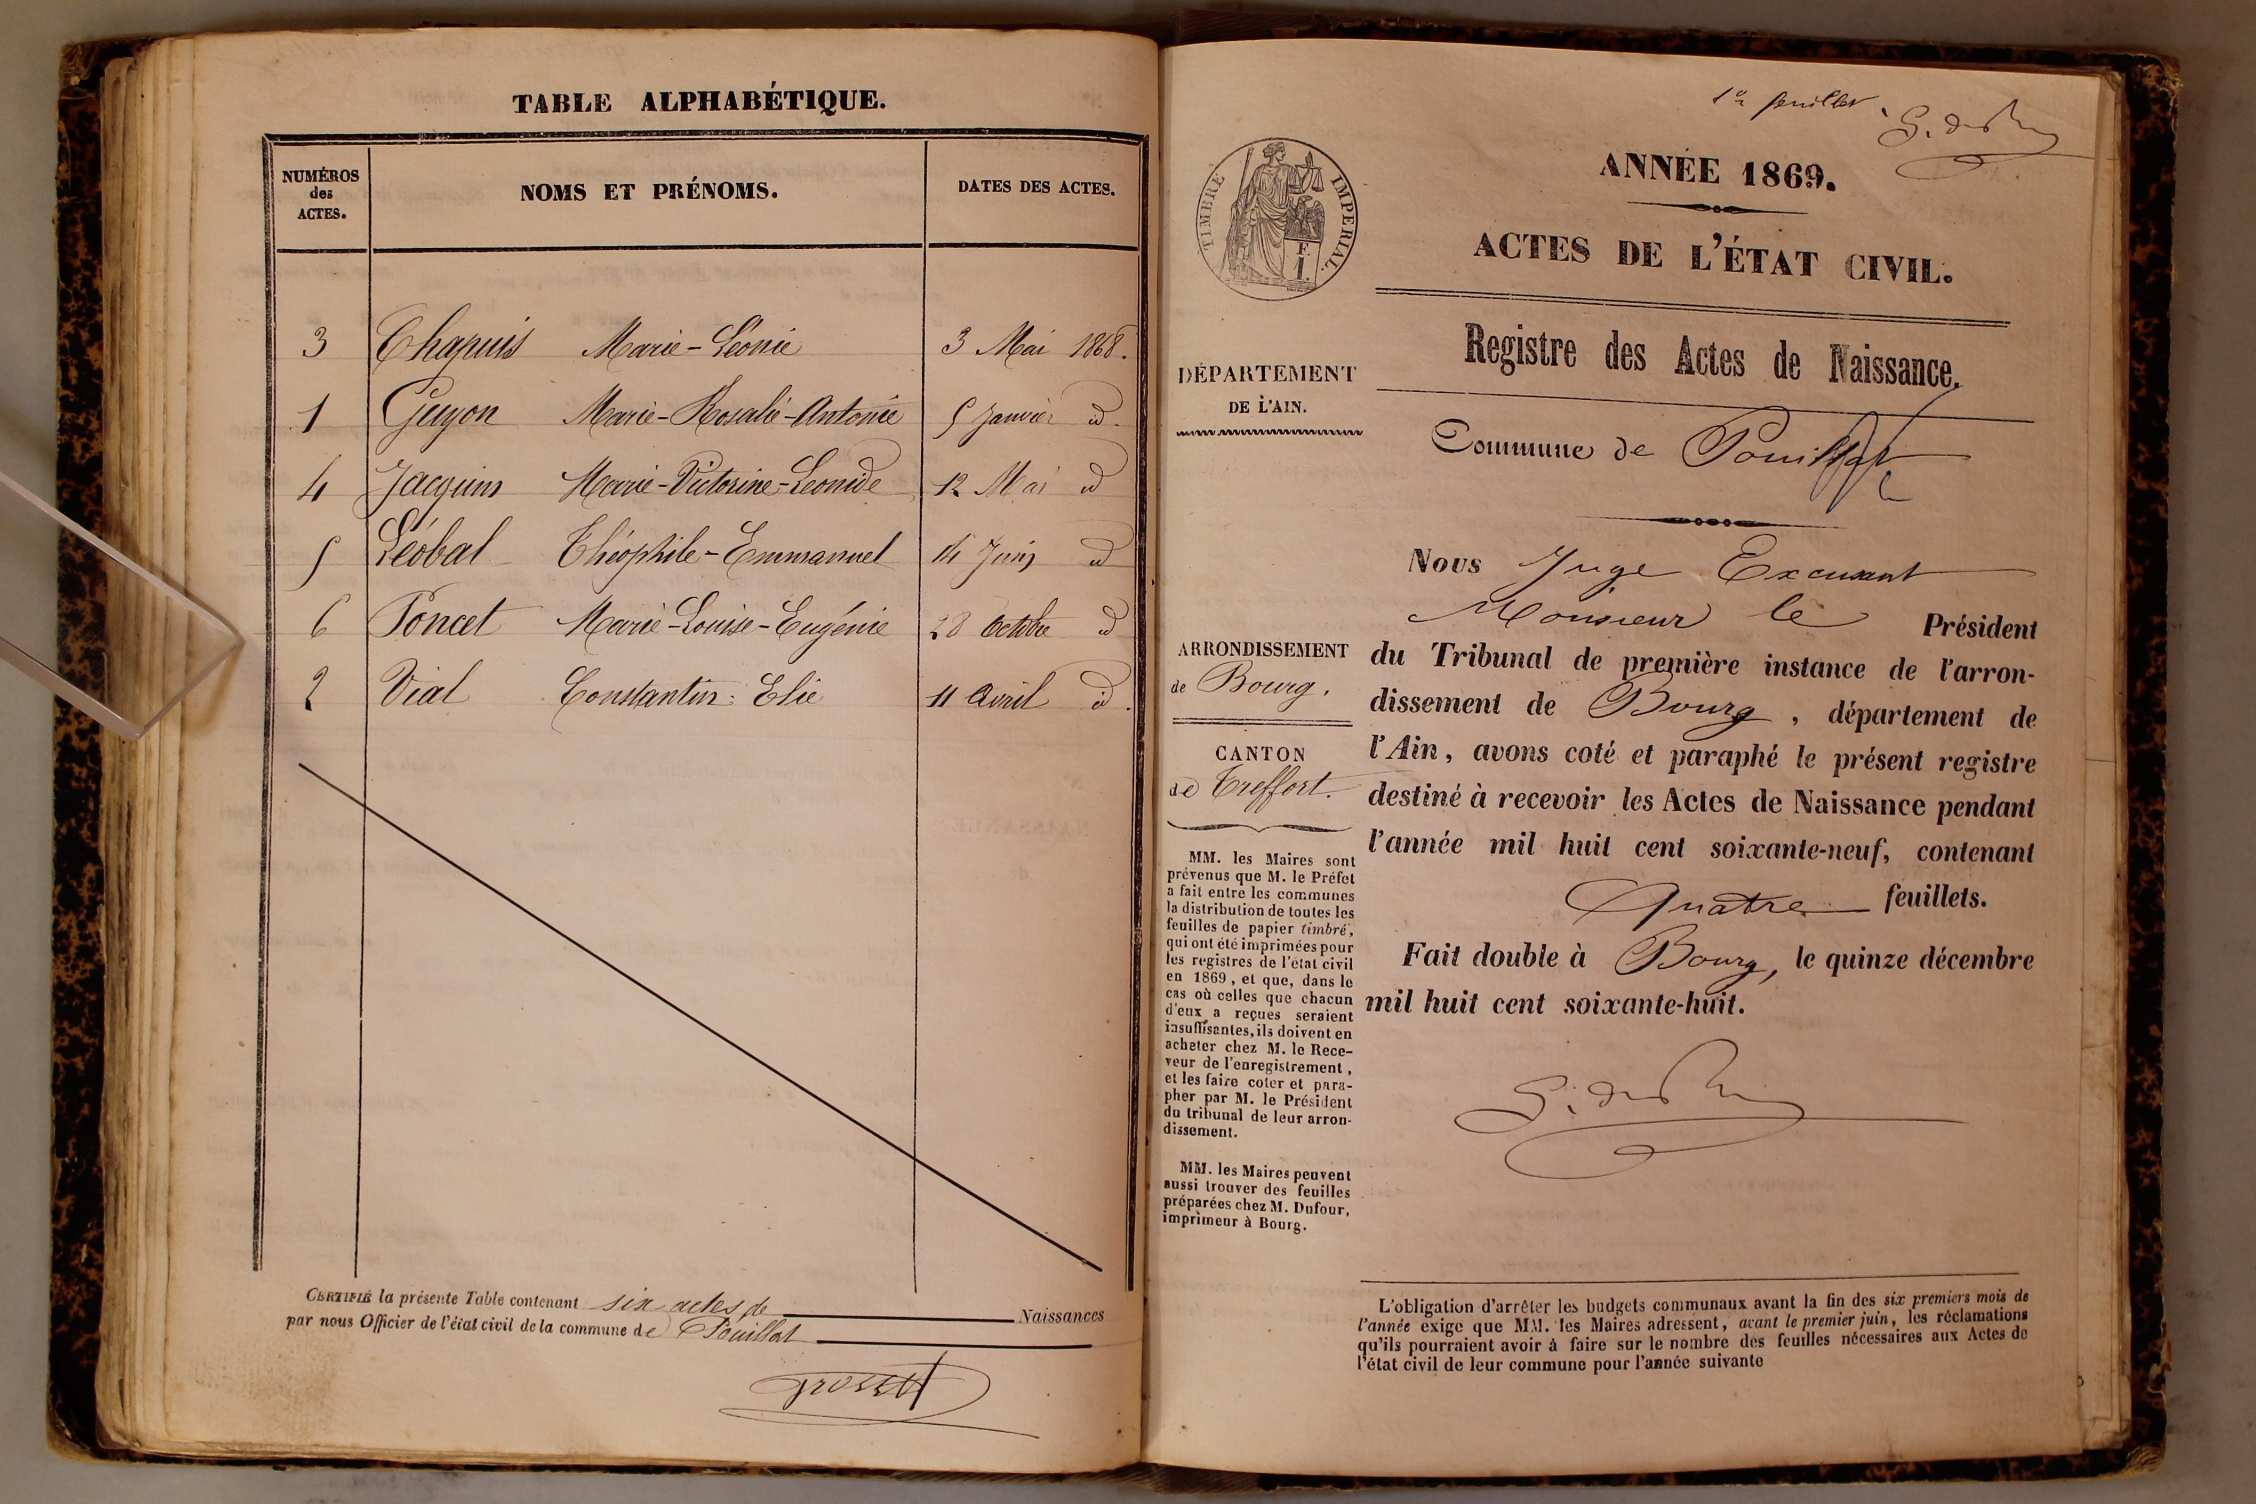 TABLE ALPHABÉTIQUE.
NUMÉROS des ACTES. NOMS ET PRÉNOMS. DATES DES ACTES.
3 Chapuis Marie-Léonie 3 Mai 1868.
1 Guyon Marie-Rosalie-Antonie 5 Janvier id.
4 Jacquin Marie-Victorine-Leonide 12 Mai id
5 Léobal Théophile-Emmanuel 14 Juin id
6 Poncet Marie-Louise-Eugénie 28 Octobre id
2 Vial Constantin-Elie 11 Avril id.
CERTIFIÉ la présente Table contenant six actes de Naissances
par nous Officier de l'état civil de la commune de Pouillat
1er feuillet.
ANNÉE 1869.
ACTES DE L'ÉTAT CIVIL.
TIMBRE IMPERIAL.
F. 1.
Registre des Actes de Naissance.
DÉPARTEMENT
DE L'AIN.
Commune de Pouillat
Nous Juge Excusant
Monsieur le Président
du Tribunal de première instance de l'arron-
dissement de Bourg, département de
l'Ain, avons coté et paraphé le présent registre
destiné à recevoir les Actes de Naissance pendant
l'année mil huit cent soixante-neuf, contenant
Quatre feuillets.
Fait double à Bourg, le quinze décembre
mil huit cent soixante-huit.
ARRONDISSEMENT
de Bourg.
CANTON
de Treffort.
MM. les Maires sont
prévenus que M. le Préfet
a fait entre les communes
la distribution de toutes les
feuilles de papier timbré,
qui ont été imprimées pour
les registres de l'état civil
en 1869, et que, dans le
cas où celles que chacun
d'eux a reçues seraient
insuffisantes, ils doivent en
acheter chez M. le Rece-
veur de l'enregistrement,
et les faire coter et para-
pher par M. le Président
du tribunal de leur arron-
dissement.
MM. les Maires peuvent
aussi trouver des feuilles
préparées chez M. Dufour,
imprimeur à Bourg.
L'obligation d'arrêter les budgets communaux avant la fin des six premiers mois de
l'année exige que MM. les Maires adressent, avant le premier juin, les réclamations
qu'ils pourraient avoir à faire sur le nombre des feuilles nécessaires aux Actes de
l'état civil de leur commune pour l'année suivante